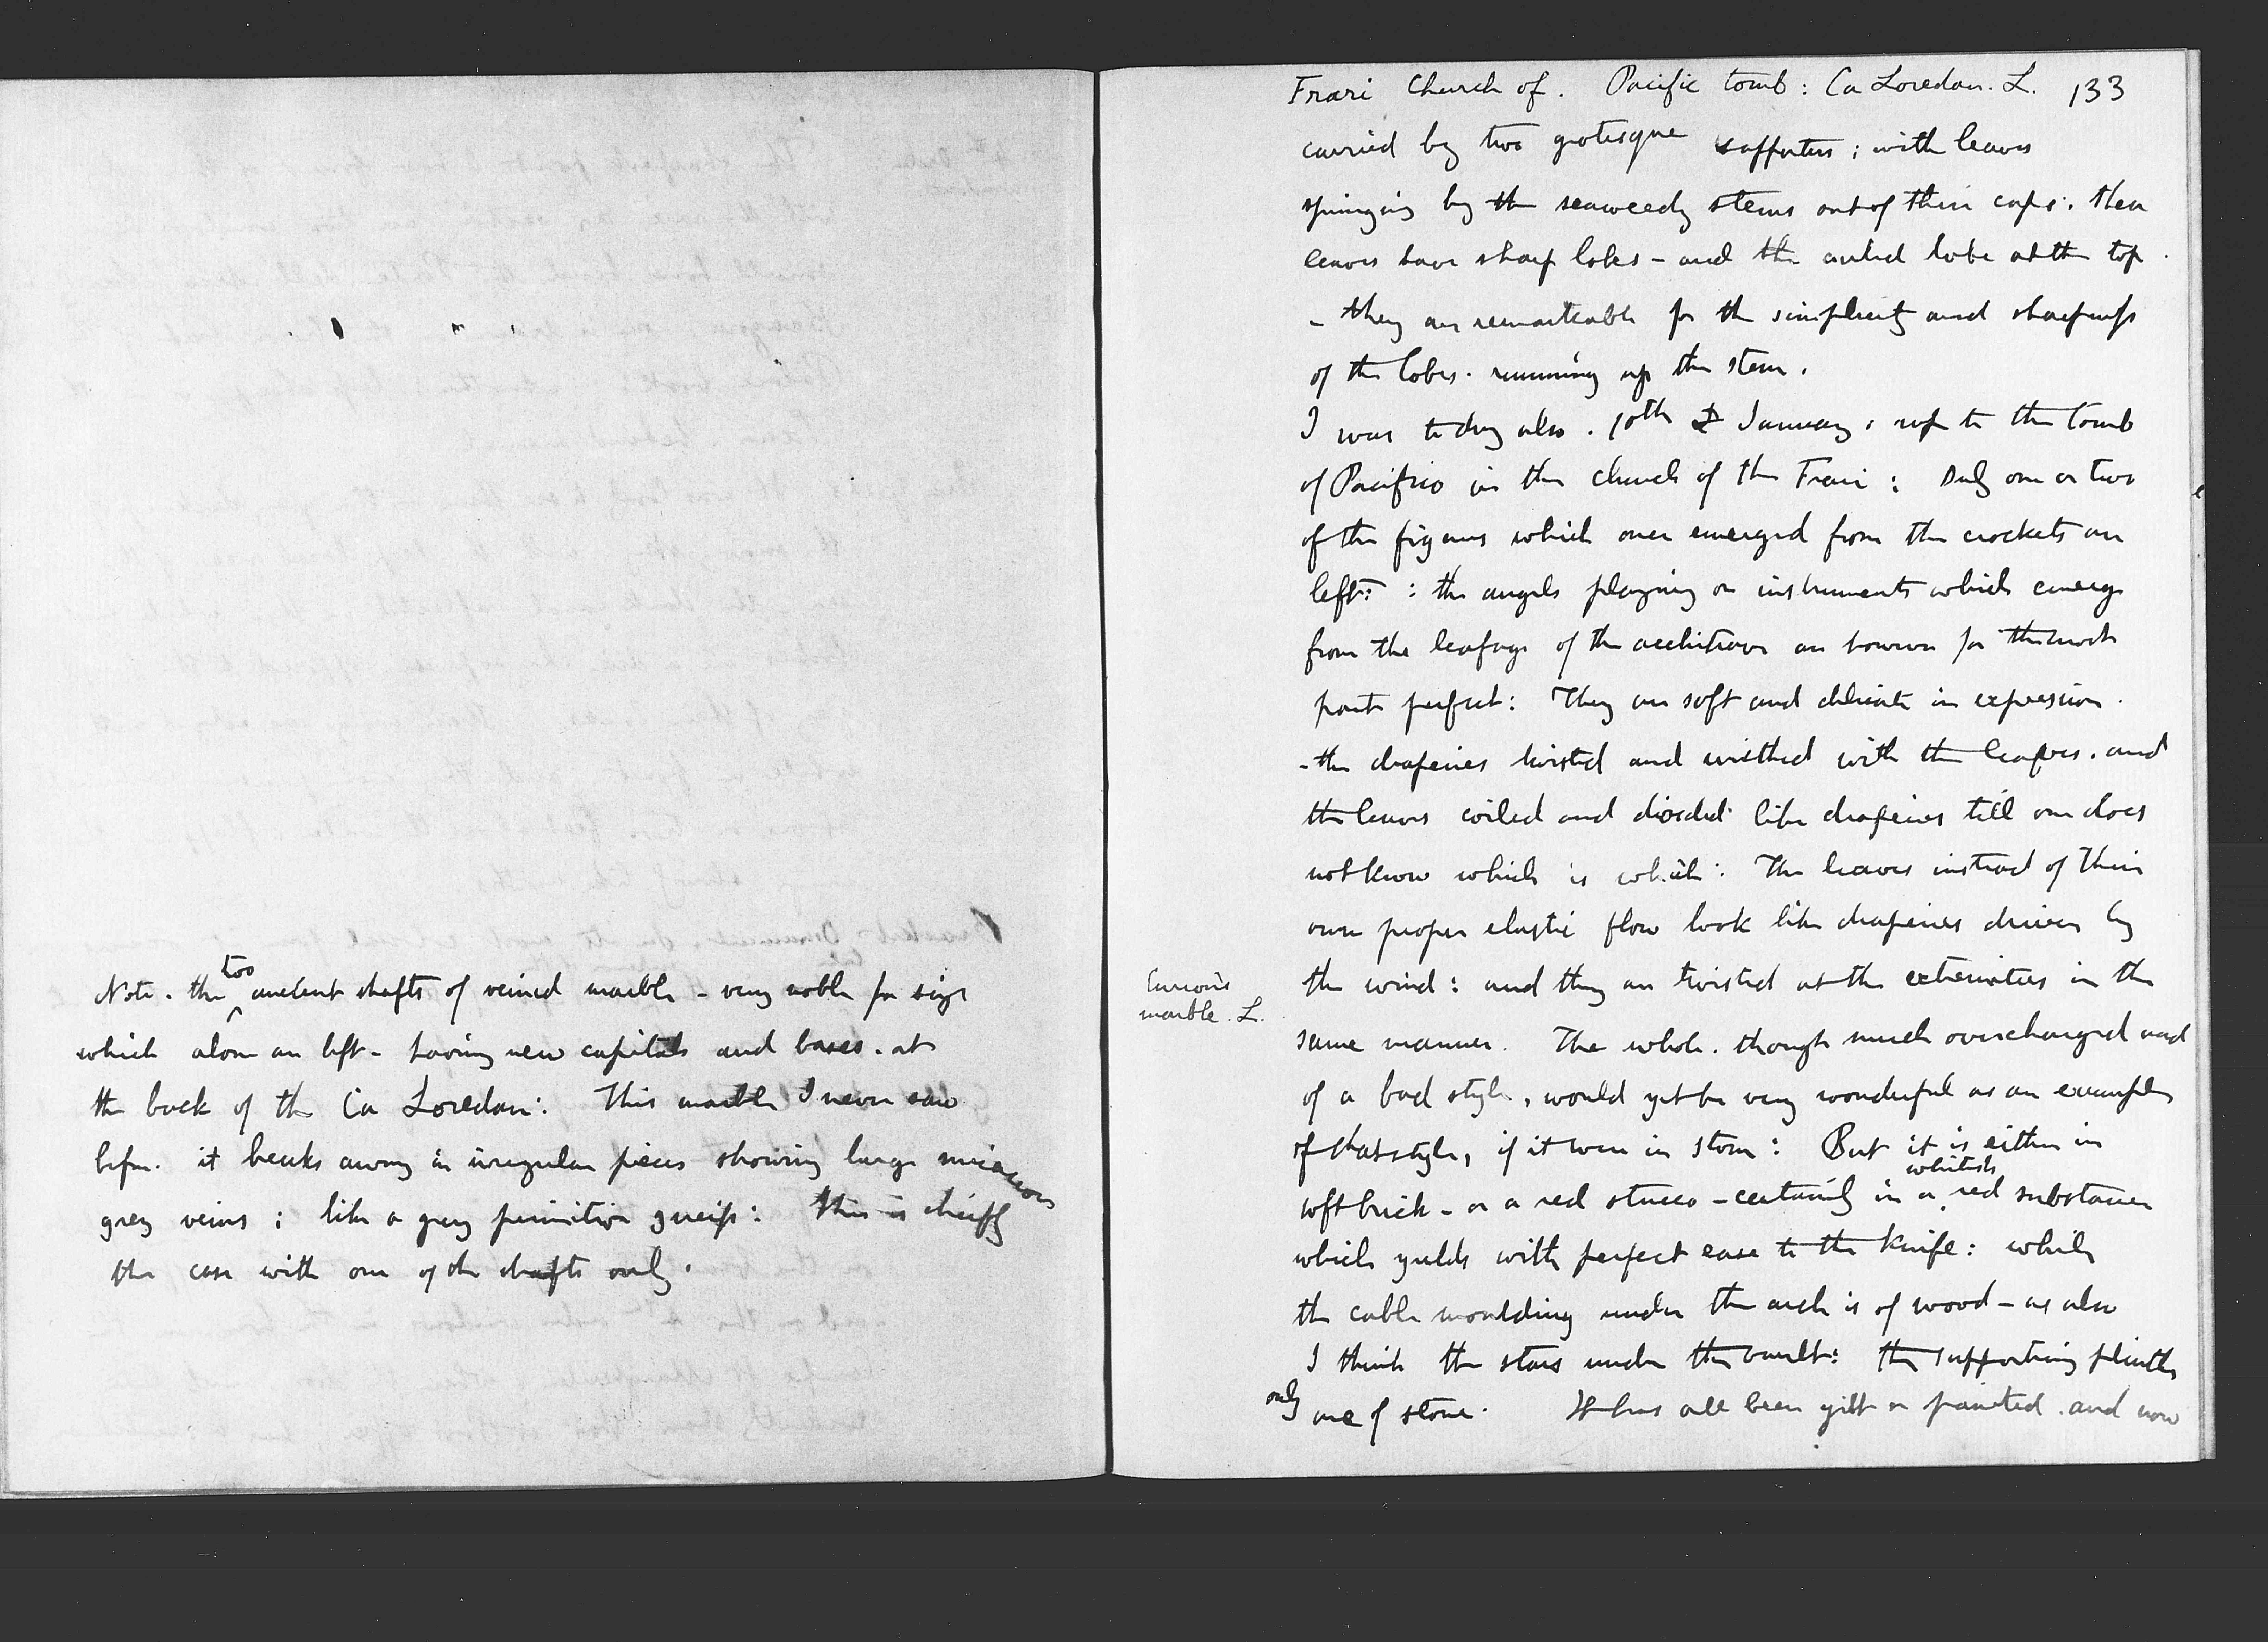 Note. the too ancient shafts of veined marble - very noble for size
which alone are left - having new capitals and bases. at
the back of the Ca Loredan: This marble I never saw
before. it breaks away in irregular pieces showing large micaceous
grey veins; like a grey primitive gneiss: this is chiefly
the case with one of the shafts only.
Frari Church of. Pacific tomb: Ca Loredan. L. 133
carried by two grotesque supporters; with leaves
springing by the seaweedy stems out of their caps: these
leaves have sharp lobes - and the curled lobe at the top.
- they are remarkable for the simplicity and sharpness
of the lobes. running up the stem.
I was to day also. 10th January, up to the tomb
of Pacifico in the church of the Frari: Only one or two
of the figures which once emerged from the crockets are
left: : the angels playing on instruments which emerge
from the leafage of the architrave are however for the most
part perfect: They are soft and delicate in expression.
- the draperies twisted and writhed with the leafage. and
the leaves coiled and divided like draperies till one does
not know which is which: The leaves instead of their
own proper elastic flow look like draperies driven by
Curious
marble. L.
the wind: and they are twisted at the extremities in the
same manner. The whole. though much overcharged and
of a bad style, would yet be very wonderful as an example
of that style, if it were in stone: But it is either in
soft brick - or a red stucco - certainly in a whitish red substance
which yields with perfect ease to the knife: while
the cable moulding under the arch is of wood - as also
I think the stars under the vault: the supporting plinths
only are of stone. It has all been gilt or painted. and now